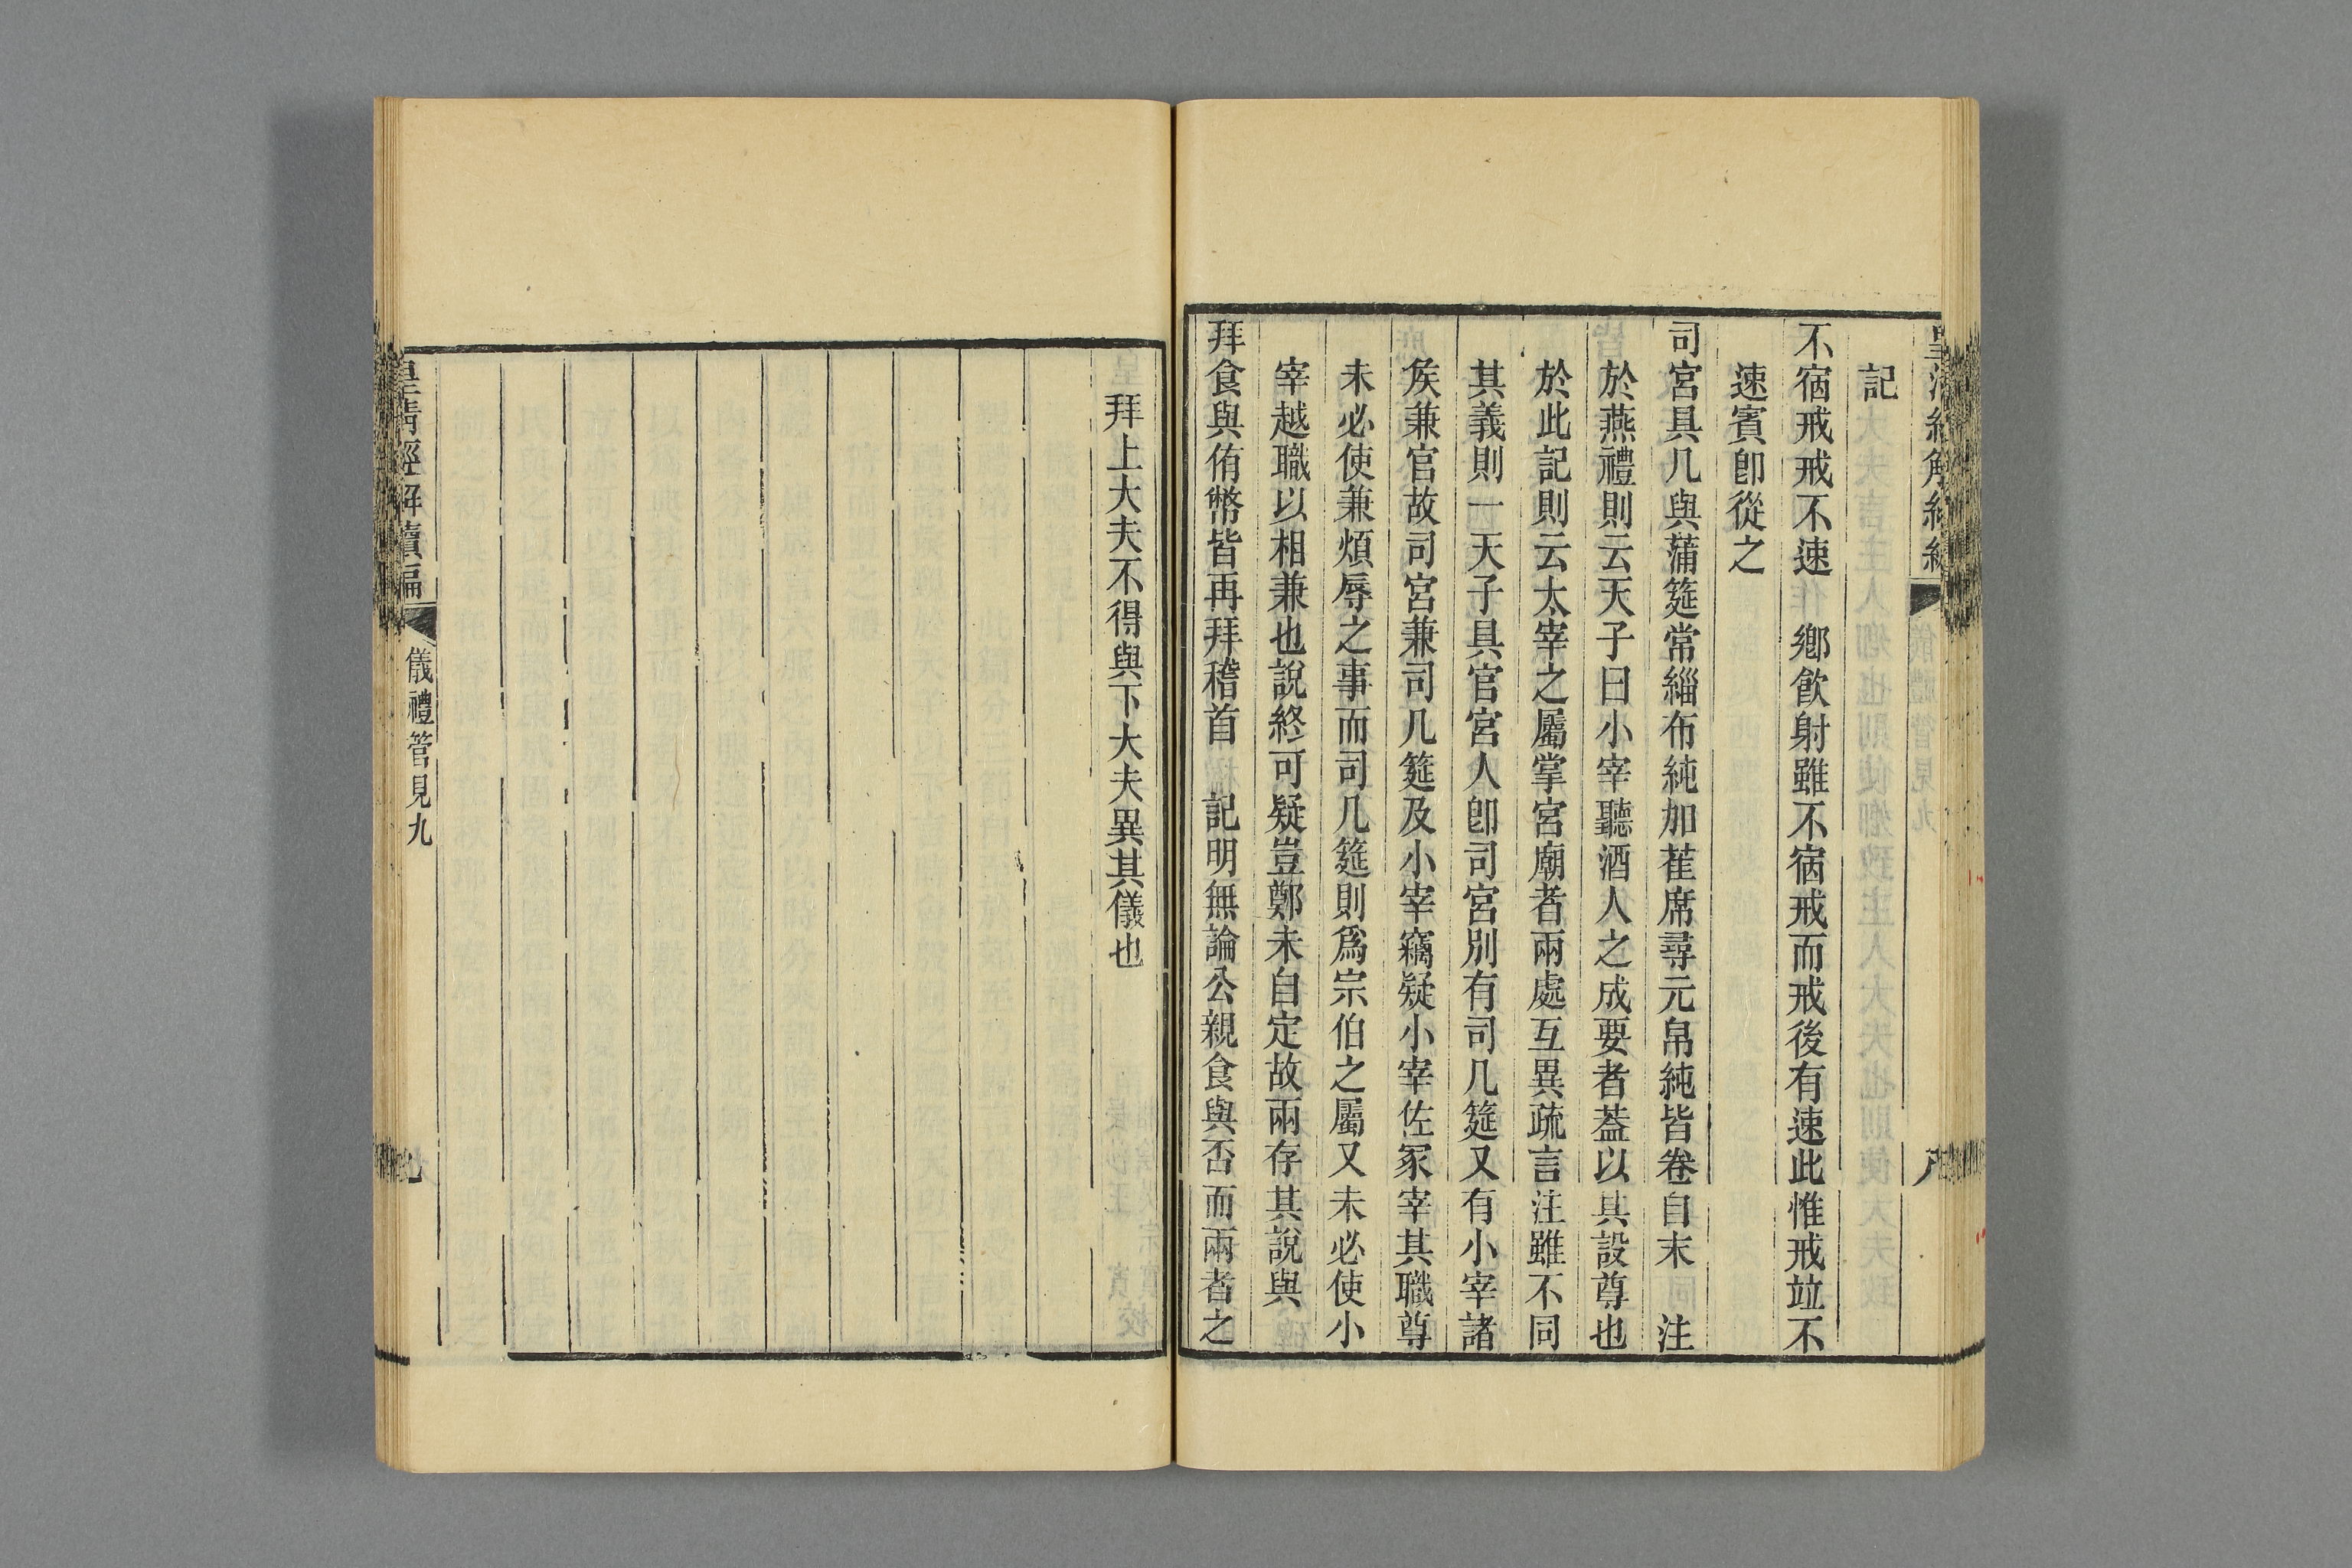 記
不宿戒戒不速　鄉飲射雖不宿戒而戒後有速此惟戒竝不
速賓卽從之
司宮具几與蒲筵常緇布純加萑席尋元帛純皆卷自末　注
於燕禮則云天子曰小宰聽酒人之成要者蓋以具設尊也
於此記則云太宰之屬掌宮廟者兩處互異疏言注雖不同
其義則一天子具官宮人卽司宮別有司几筵又有小宰諸
矦兼官故司宮兼司几筵及小宰竊疑小宰佐冢宰其職尊
未必使兼煩辱之事而司几筵則爲宗伯之屬又未必使小
宰越職以相兼也說終可疑豈鄭未自定故兩存其說與
拜食與侑幣皆再拜稽首　記明無論公親食與否而兩者之
拜上大夫不得與下大夫異其儀也
皇清經解續編
儀禮管見九
九